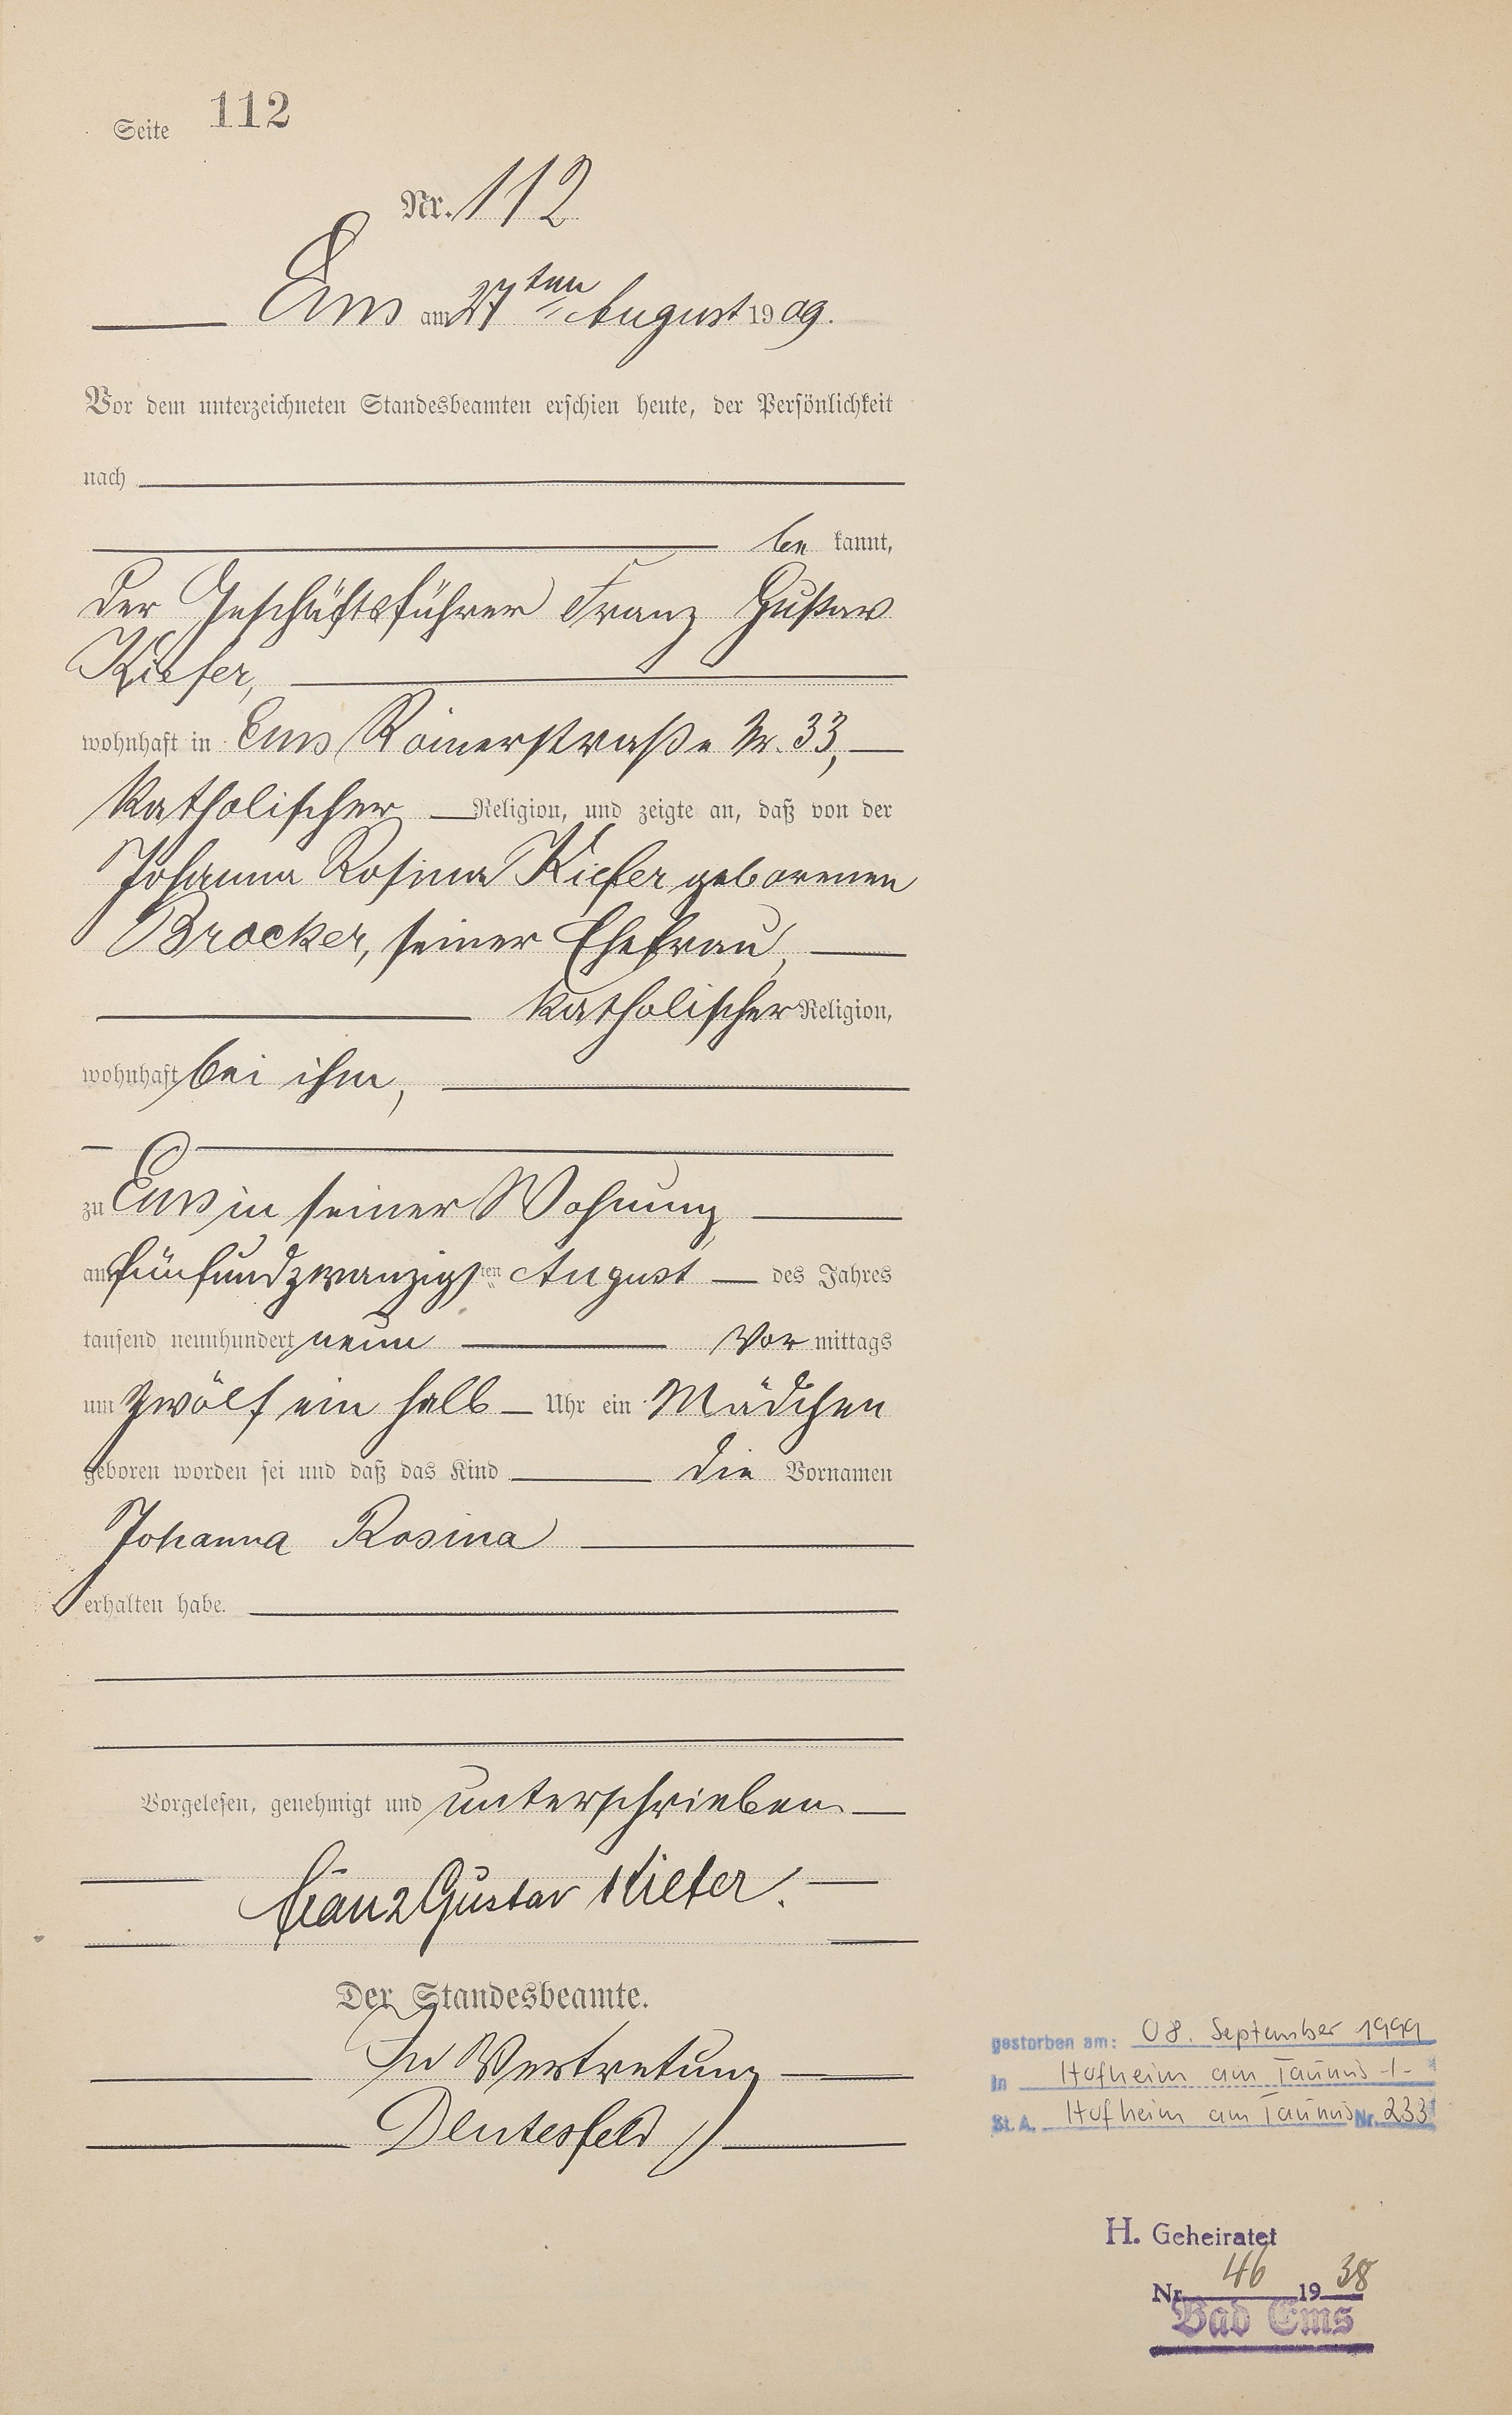 Seite 112
Nr. 112
Ems am 27ten August 1909.
Vor dem unterzeichneten Standesbeamten erschien heute, der Persönlichkeit
nach
be kannt,
der Geschäftsführer Franz Gustav
Kiefer,
wohnhaft in Ems, Römerstraße Nr. 33,
katholischer Religion, und zeigte an, daß von der
Johanna Rosina Kiefer geborenen
Brocker, seiner Ehefrau,
katholischer Religion,
wohnhaft bei ihm,
zu Ems in seiner Wohnung,
am fünfundzwanzigsten August des Jahres
tausend neunhundert neun Vor mittags
um zwölf ein halb Uhr ein Mädchen
geboren worden sei und daß das Kind die Vornamen
Johanna Rosina
erhalten habe.
Vorgelesen, genehmigt und unterschrieben
Franz Gustav Kiefer.
Der Standesbeamte.
In Vertretung
gestorben am: 08. September 1999
in Hofheim am Taunus -/-
St. A. Hofheim am Taunus Nr. 233
H. Geheiratet
Nr. 46 1938
Bad Ems